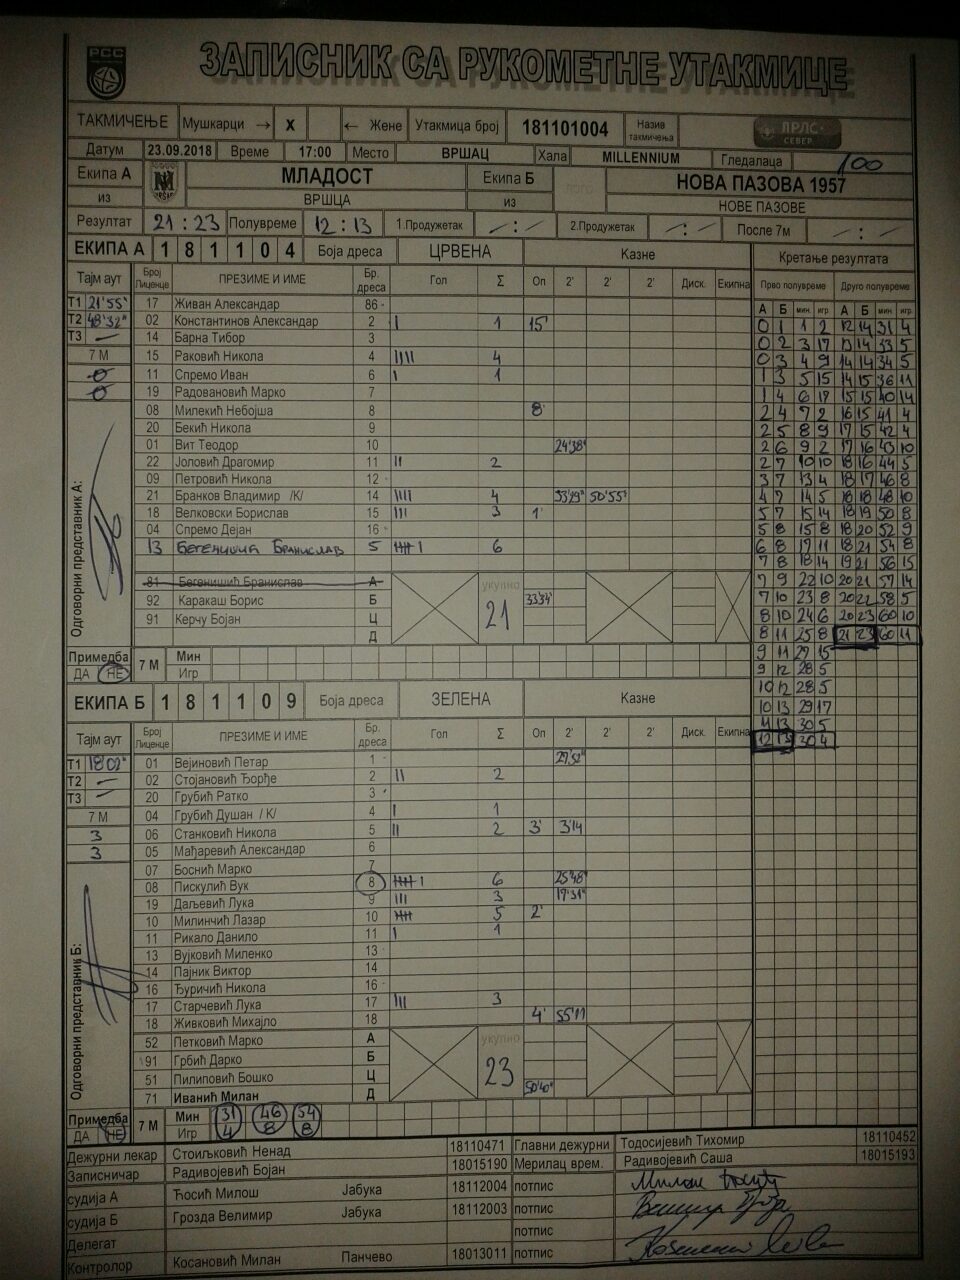 РСС
ЗАПИСНИК СА РУКОМЕТНЕ УТАКМИЦЕ
ТАКМИЧЕЊЕ Мушкарци → X ← Жене Утакмица број 181101004 Назив такмичења ПРЛС СЕВЕР
Датум 23.09.2018 Време 17:00 Место ВРШАЦ Хала MILLENNIUM Гледалаца 100
Екипа А МЛАДОСТ Екипа Б НОВА ПАЗОВА 1957
из ВРШЦА из НОВЕ ПАЗОВЕ
Резултат 21:23 Полувреме 12:13 1.Продужетак -:- 2.Продужетак -:- После 7м -:-
ЕКИПА А 1 8 1 1 0 4 Боја дреса ЦРВЕНА Казне Кретање резултата
Тајм аут Број Лиценце ПРЕЗИМЕ И ИМЕ Бр. дреса Гол Σ Оп 2' 2' 2' Диск. Екипна Прво полувреме Друго полувреме
А Б мин. игр. А Б мин игр.
T1 21'55" 17 Живан Александар 86
T2 48'32" 02 Константинов Александар 2 I 1 15'
T3 — 14 Барна Тибор 3
7 М 15 Раковић Никола 4 IIII 4
11 Спремо Иван 6 I 1
19 Радовановић Марко 7
08 Милекић Небојша 8 8'
20 Бекић Никола 9
01 Вит Теодор 10 24'38"
22 Јоловић Драгомир 11 II 2
09 Петровић Никола 12
21 Бранков Владимир /К/ 14 IIII 4 33'29" 50'55"
18 Велковски Борислав 15 III 3 1'
04 Спремо Дејан 16
13 БЕГЕНИШИЋ БРАНИСЛАВ 5 IIIII I 6
81 Бегенишић Бранислав А укупно
92 Каракаш Борис Б 21 33'34"
91 Керчу Бојан Ц
Д
Одговорни представник А:
Примедба ДА НЕ 7 М Мин
Игр
0 1 1 2 12 14 31 4
0 2 3 17 13 14 33 5
0 3 4 9 14 14 34 5
1 3 5 15 14 15 36 11
1 4 6 17 15 15 40 14
2 4 7 2 16 15 41 4
2 5 8 9 17 15 42 4
2 6 9 2 17 16 43 10
2 7 10 10 18 16 44 5
3 7 13 4 18 17 46 8
4 7 14 5 18 18 48 10
5 7 15 14 18 19 50 8
5 8 15 8 18 20 52 9
6 8 17 11 18 21 54 8
7 8 18 14 19 21 56 15
7 9 22 10 20 21 57 14
7 10 23 8 20 22 58 5
8 10 24 6 20 23 60 10
8 11 25 8 21 23 60 11
9 11 27 15
9 12 28 5
10 12 28 5
10 13 29 17
11 13 30 5
12 13 30 4
ЕКИПА Б 1 8 1 1 0 9 Боја дреса ЗЕЛЕНА Казне
Тајм аут Број Лиценце ПРЕЗИМЕ И ИМЕ Бр. дреса Гол Σ Оп 2' 2' 2' Диск. Екипна
T1 18'02" 01 Вејиновић Петар 1 29'52"
T2 — 02 Стојановић Ђорђе 2 II 2
T3 — 20 Грубић Ратко 3
7 М 04 Грубић Душан / К/ 4 I 1
3 06 Станковић Никола 5 II 2 3' 3'14
3 05 Мађаревић Александар 6
07 Боснић Марко 7
08 Пискулић Вук 8 IIIII I 6 25'48"
19 Даљевић Лука 9 III 3 17'31"
10 Милинчић Лазар 10 IIIII 5 2'
11 Рикало Данило 11 I 1
13 Вујковић Миленко 13
14 Пајник Виктор 14
16 Ђуричић Никола 16
17 Старчевић Лука 17 III 3
18 Живковић Михајло 18 4' 55'11
52 Петковић Марко А укупно
91 Грбић Дарко Б 23
51 Пилиповић Бошко Ц 50'40"
71 Иванић Милан Д
Одговорни представник Б:
Примедба ДА НЕ 7 М Мин 31 46 54
Игр 4 8 8
Дежурни лекар Стоиљковић Ненад 18110471 Главни дежурни Тодосијевић Тихомир 18110452
Записничар Радивојевић Бојан 18015190 Мерилац врем. Радивојевић Саша 18015193
судија А Ћосић Милош Јабука 18112004 потпис
судија Б Грозда Велимир Јабука 18112003 потпис
Делегат потпис
Контролор Косановић Милан Панчево 18013011 потпис